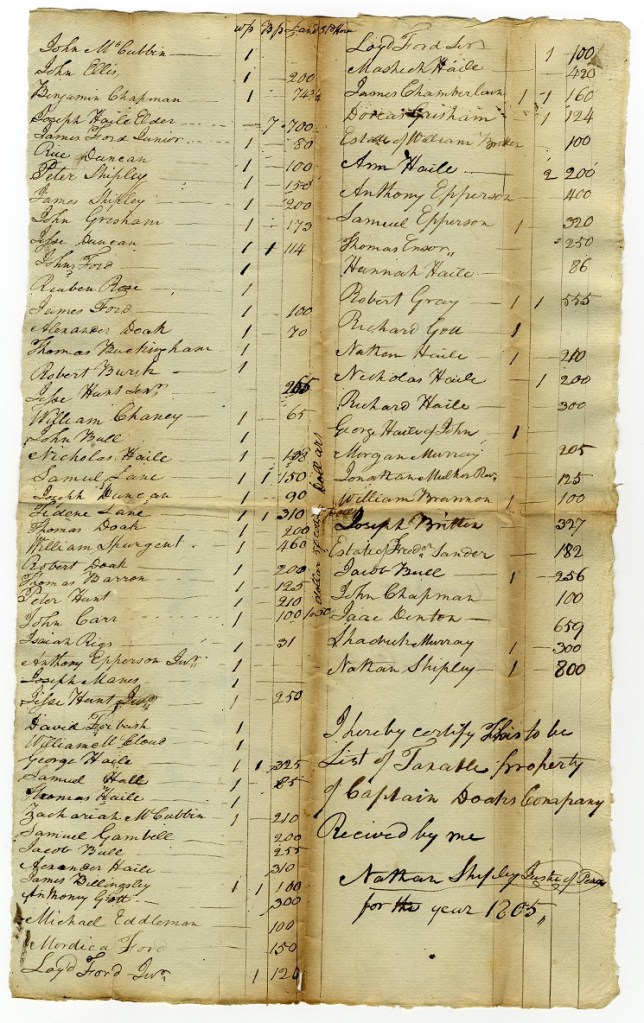 wp Bp Land St Hors
John McCubbin 1
John Ellis 1 200
Benjamin Chapman 1 74 3/4
Joseph Haile Elder 7 700
James Ford Junior 1 80
Rue Duncan 1 100
Peter Shipley 1 150
James Shipley 1 200
John Gresham 1 173
Jesse Duncan 1 1 114
John Ford 1
Reuben Rose 1
James Ford 1 100
Alexander Doak 1 70
Thomas Buckingham 1
Robert Burk 1
Jesse Hunt Senr 265
William Chaney 1 65
John Bull 1
Nicholas Haile 1 108
Samuel Lane 1 1 150
Joseph Duncan 1 90
Tidene Lane 1 1 310
Thomas Doak 1 200
William Spurgent 1 460
Robert Doak 200
Thomas Barron 1 125
Peter Hunt 1 210
John Carr 1 100
Isaiah Rigs 1 31
Anthony Epperson Junr 1
Joseph Manes 1
Jesse Hunt Junr 1 250
David Forbush 1
William McCloud 1
George Haile 1 1 325
Samuel Hall 1 85
Thomas Haile 1
Zachariah McCubbin 1 210
Samuel Gambell 200
Jacob Bull 255
Alexander Haile 310
James Billingsley 1 1 100
Anthony Gott 300
Michael Eddleman 100
Mordica Ford 150
Loyd Ford Junr 1 120
dollars
Loyd Ford Senr 1 100
Mashech Haile 420
James Chamberlain 1 1 160
Dorcas Grisham 1 124
Estate of William Britten 100
Ann Haile 2 200
Anthony Epperson 400
Samuel Epperson 1 320
Thomas Ensor 250
Hannah Haile 86
Robert Gray 1 1 555
Richard Gott 1
Nathan Haile 1 210
Nicholas Haile 1 200
Richard Haile 300
George Haile of John 1
Morgan Murray 205
Jonathan Mulkey 125
William Brannon 1 100
Joseph Britten 327
Estate of Fredr Sander 182
Jacob Bull 1 256
John Chapman 100
Isaac Denton 659
Shadrick Murray 1 300
Nathan Shipley 1 800
I hereby certify this to be
List of Taxable property
of Captain Doaks Company
Recived by me
Nathan Shipley Justice of Peace
for the year 1805